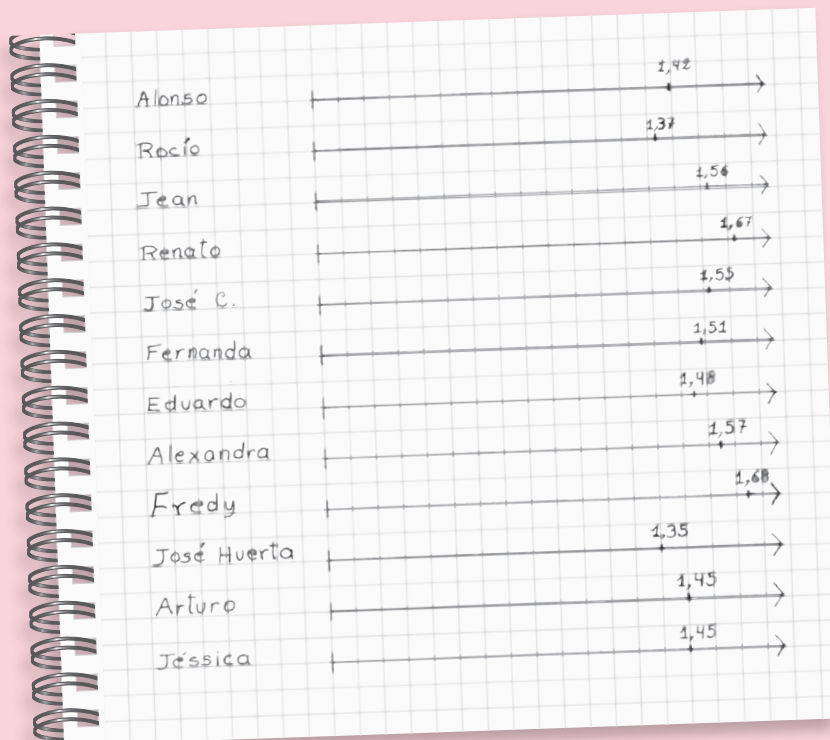 Alonso 1,42
Rocío 1,37
Jean 1,56
Renato 1,67
José C. 1,55
Fernanda 1,51
Eduardo 1,48
Alexandra 1,57
Fredy 1,68
José Huerta 1,35
Arturo 1,45
Jéssica 1,45